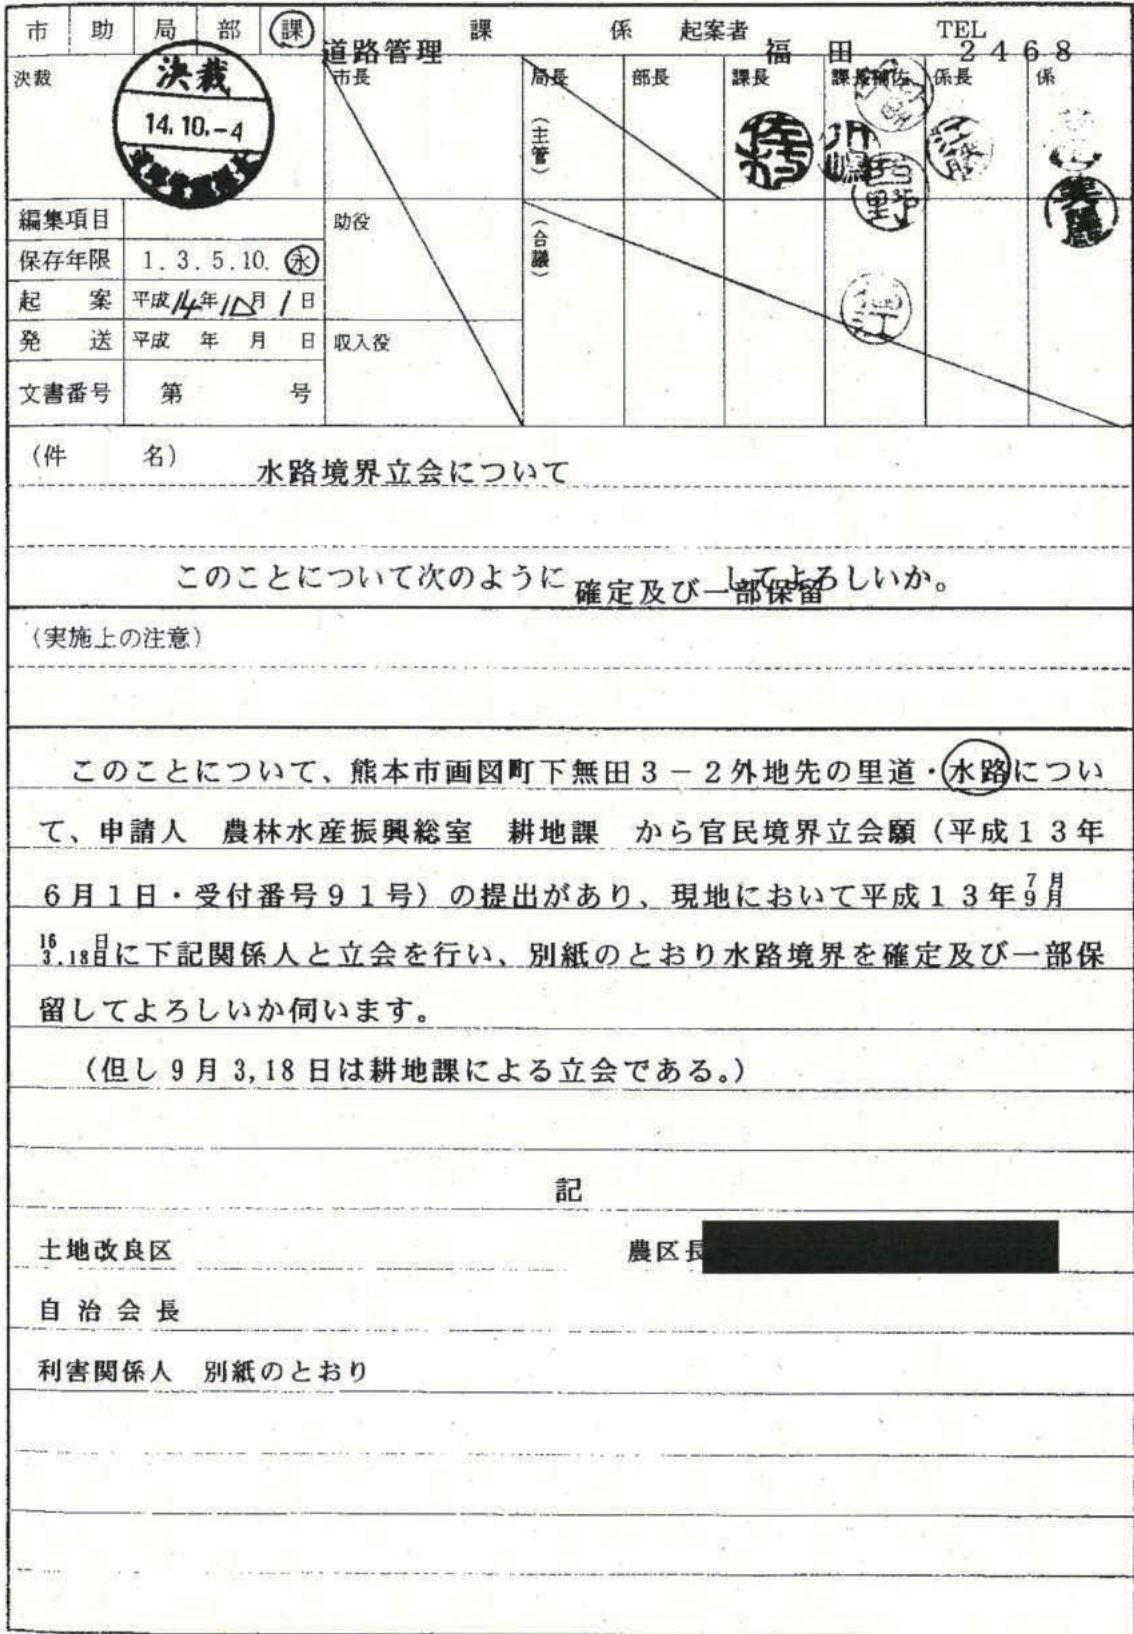 市 助 局 部 課 道路管理 課 係 起案者 福田 TEL 2468
決裁 市長 局長 部長 課長 課長補佐 係長 係
決裁
14.10.-4
(主管)
編集項目 助役 (合議)
保存年限 1.3.5.10.永
起案 平成14年10月1日
発送 平成 年 月 日 収入役
文書番号 第 号
(件 名) 水路境界立会について
このことについて次のように 確定及び一部保留 してよろしいか。
(実施上の注意)
このことについて、熊本市画図町下無田3-2外地先の里道・水路につい
て、申請人 農林水産振興総室 耕地課 から官民境界立会願(平成13年
6月1日・受付番号91号)の提出があり、現地において平成13年7月9月
16日3.18日に下記関係人と立会を行い、別紙のとおり水路境界を確定及び一部保
留してよろしいか伺います。
(但し9月3,18日は耕地課による立会である。)
記
土地改良区 農区長
自治会長
利害関係人 別紙のとおり